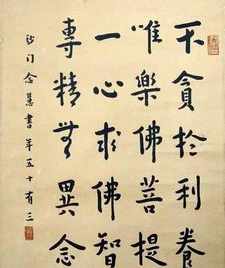 不貪於利養
唯樂佛菩提
一心求佛智
專精無異念
沙门念慧書年五十有三